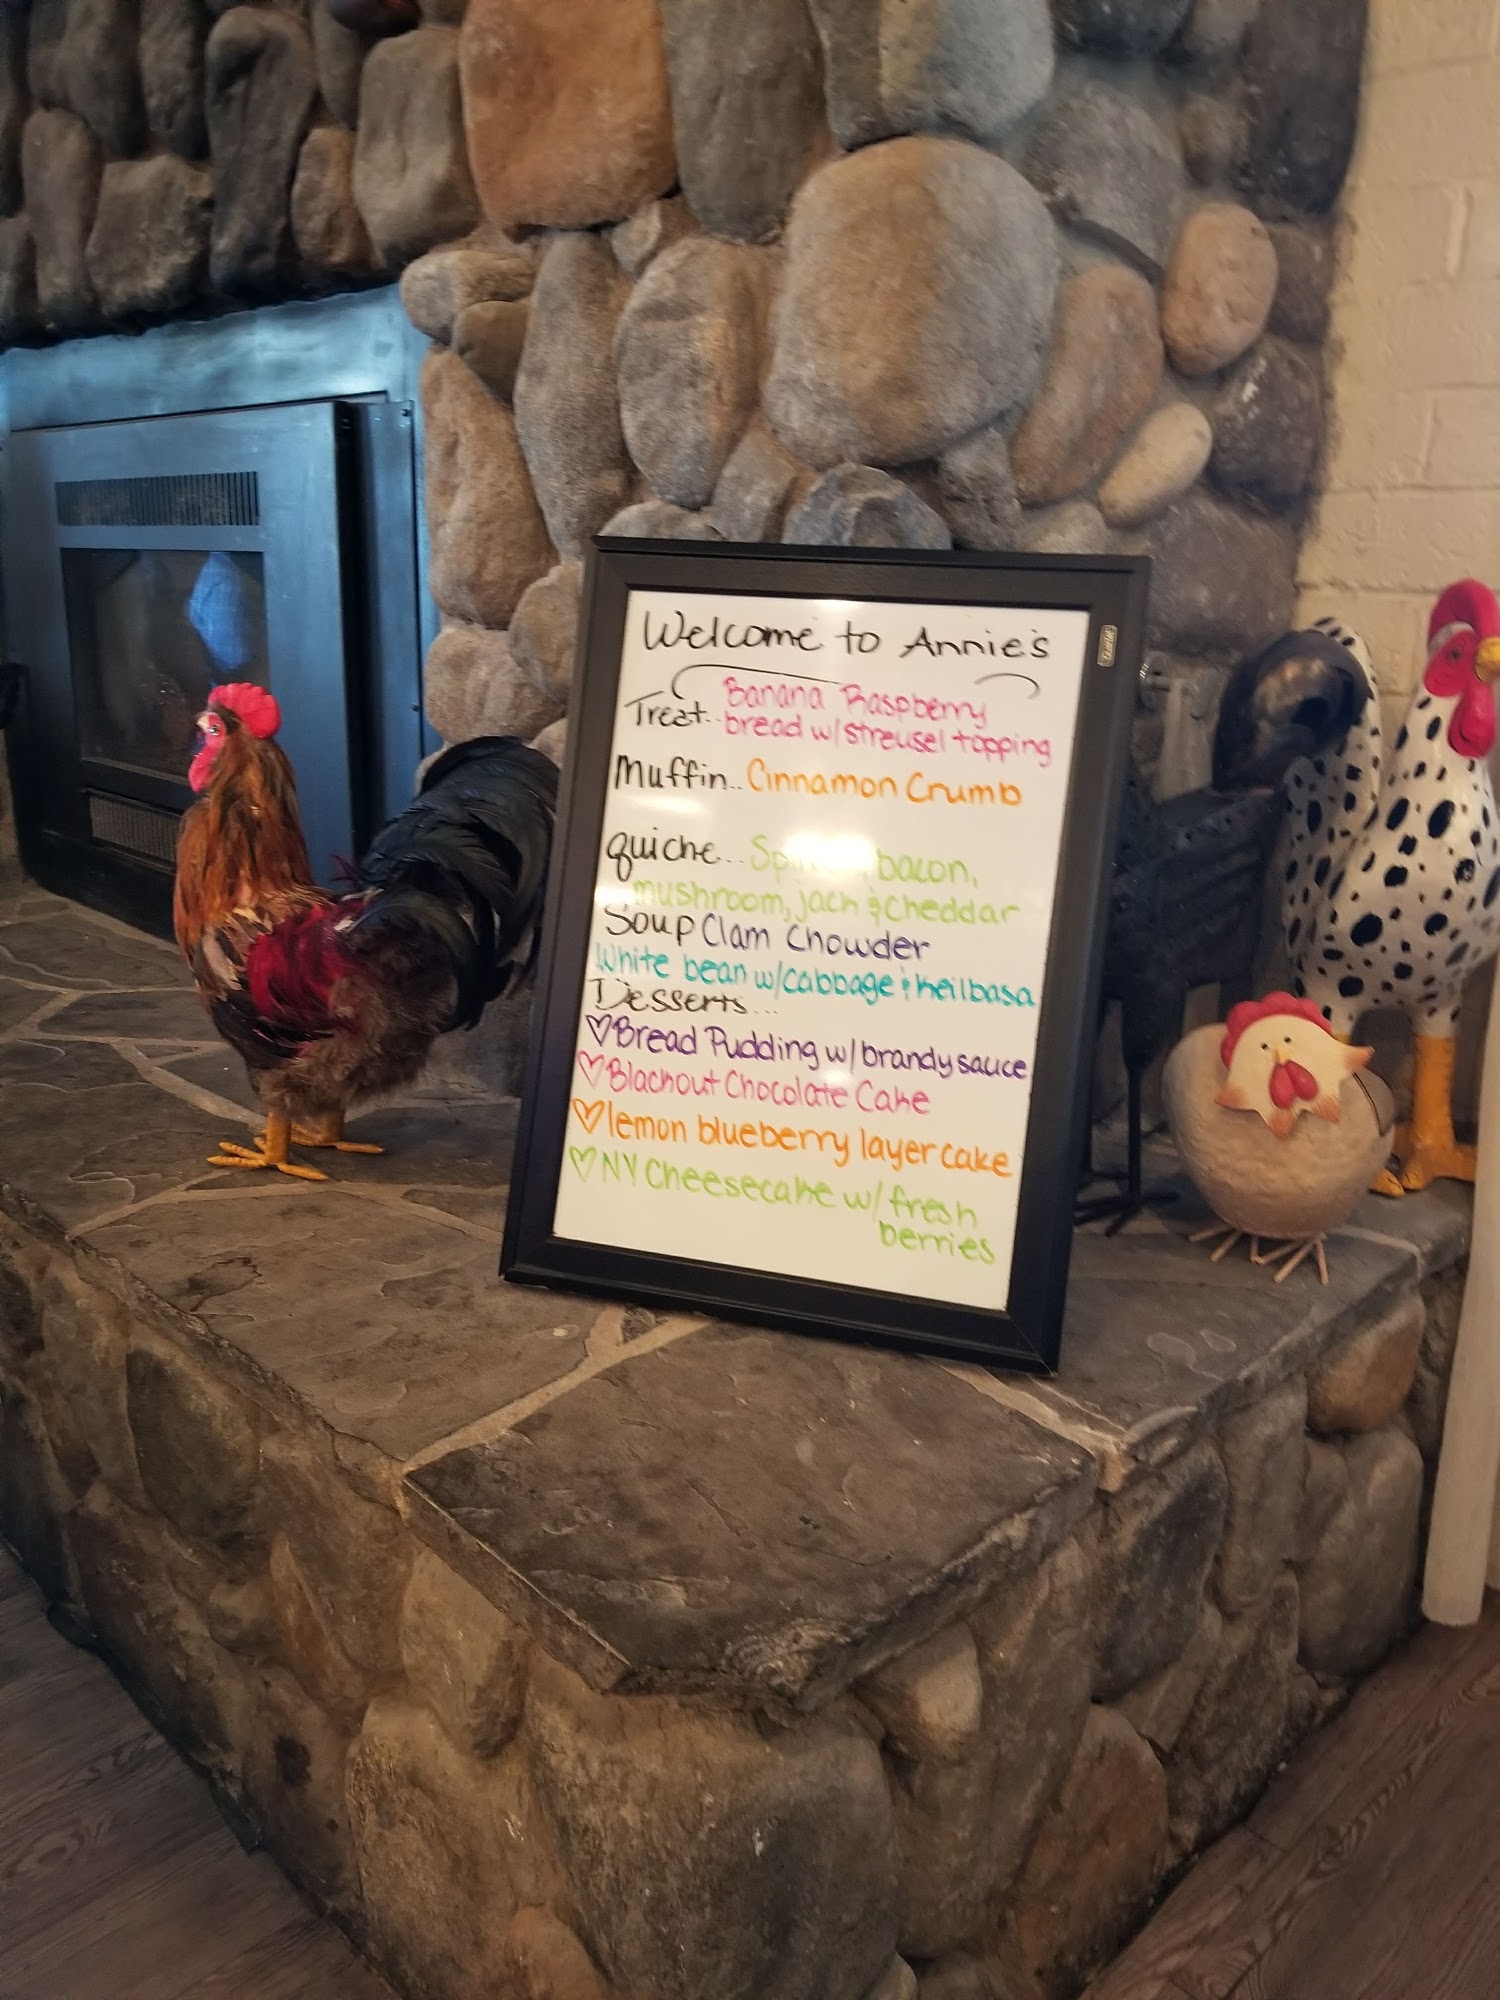 Welcome to Annie's
Treat.. Banana Raspberry
bread w/streusel topping
Muffin.. Cinnamon Crumb
quiche... bacon,
mushroom, jack & cheddar
Soup Clam Chowder
White bean w/cabbage & keilbasa
Desserts...
♡Bread Pudding w/brandy sauce
♡Blackout Chocolate Cake
♡lemon blueberry layer cake
♡NY Cheesecake w/ fresh
berries